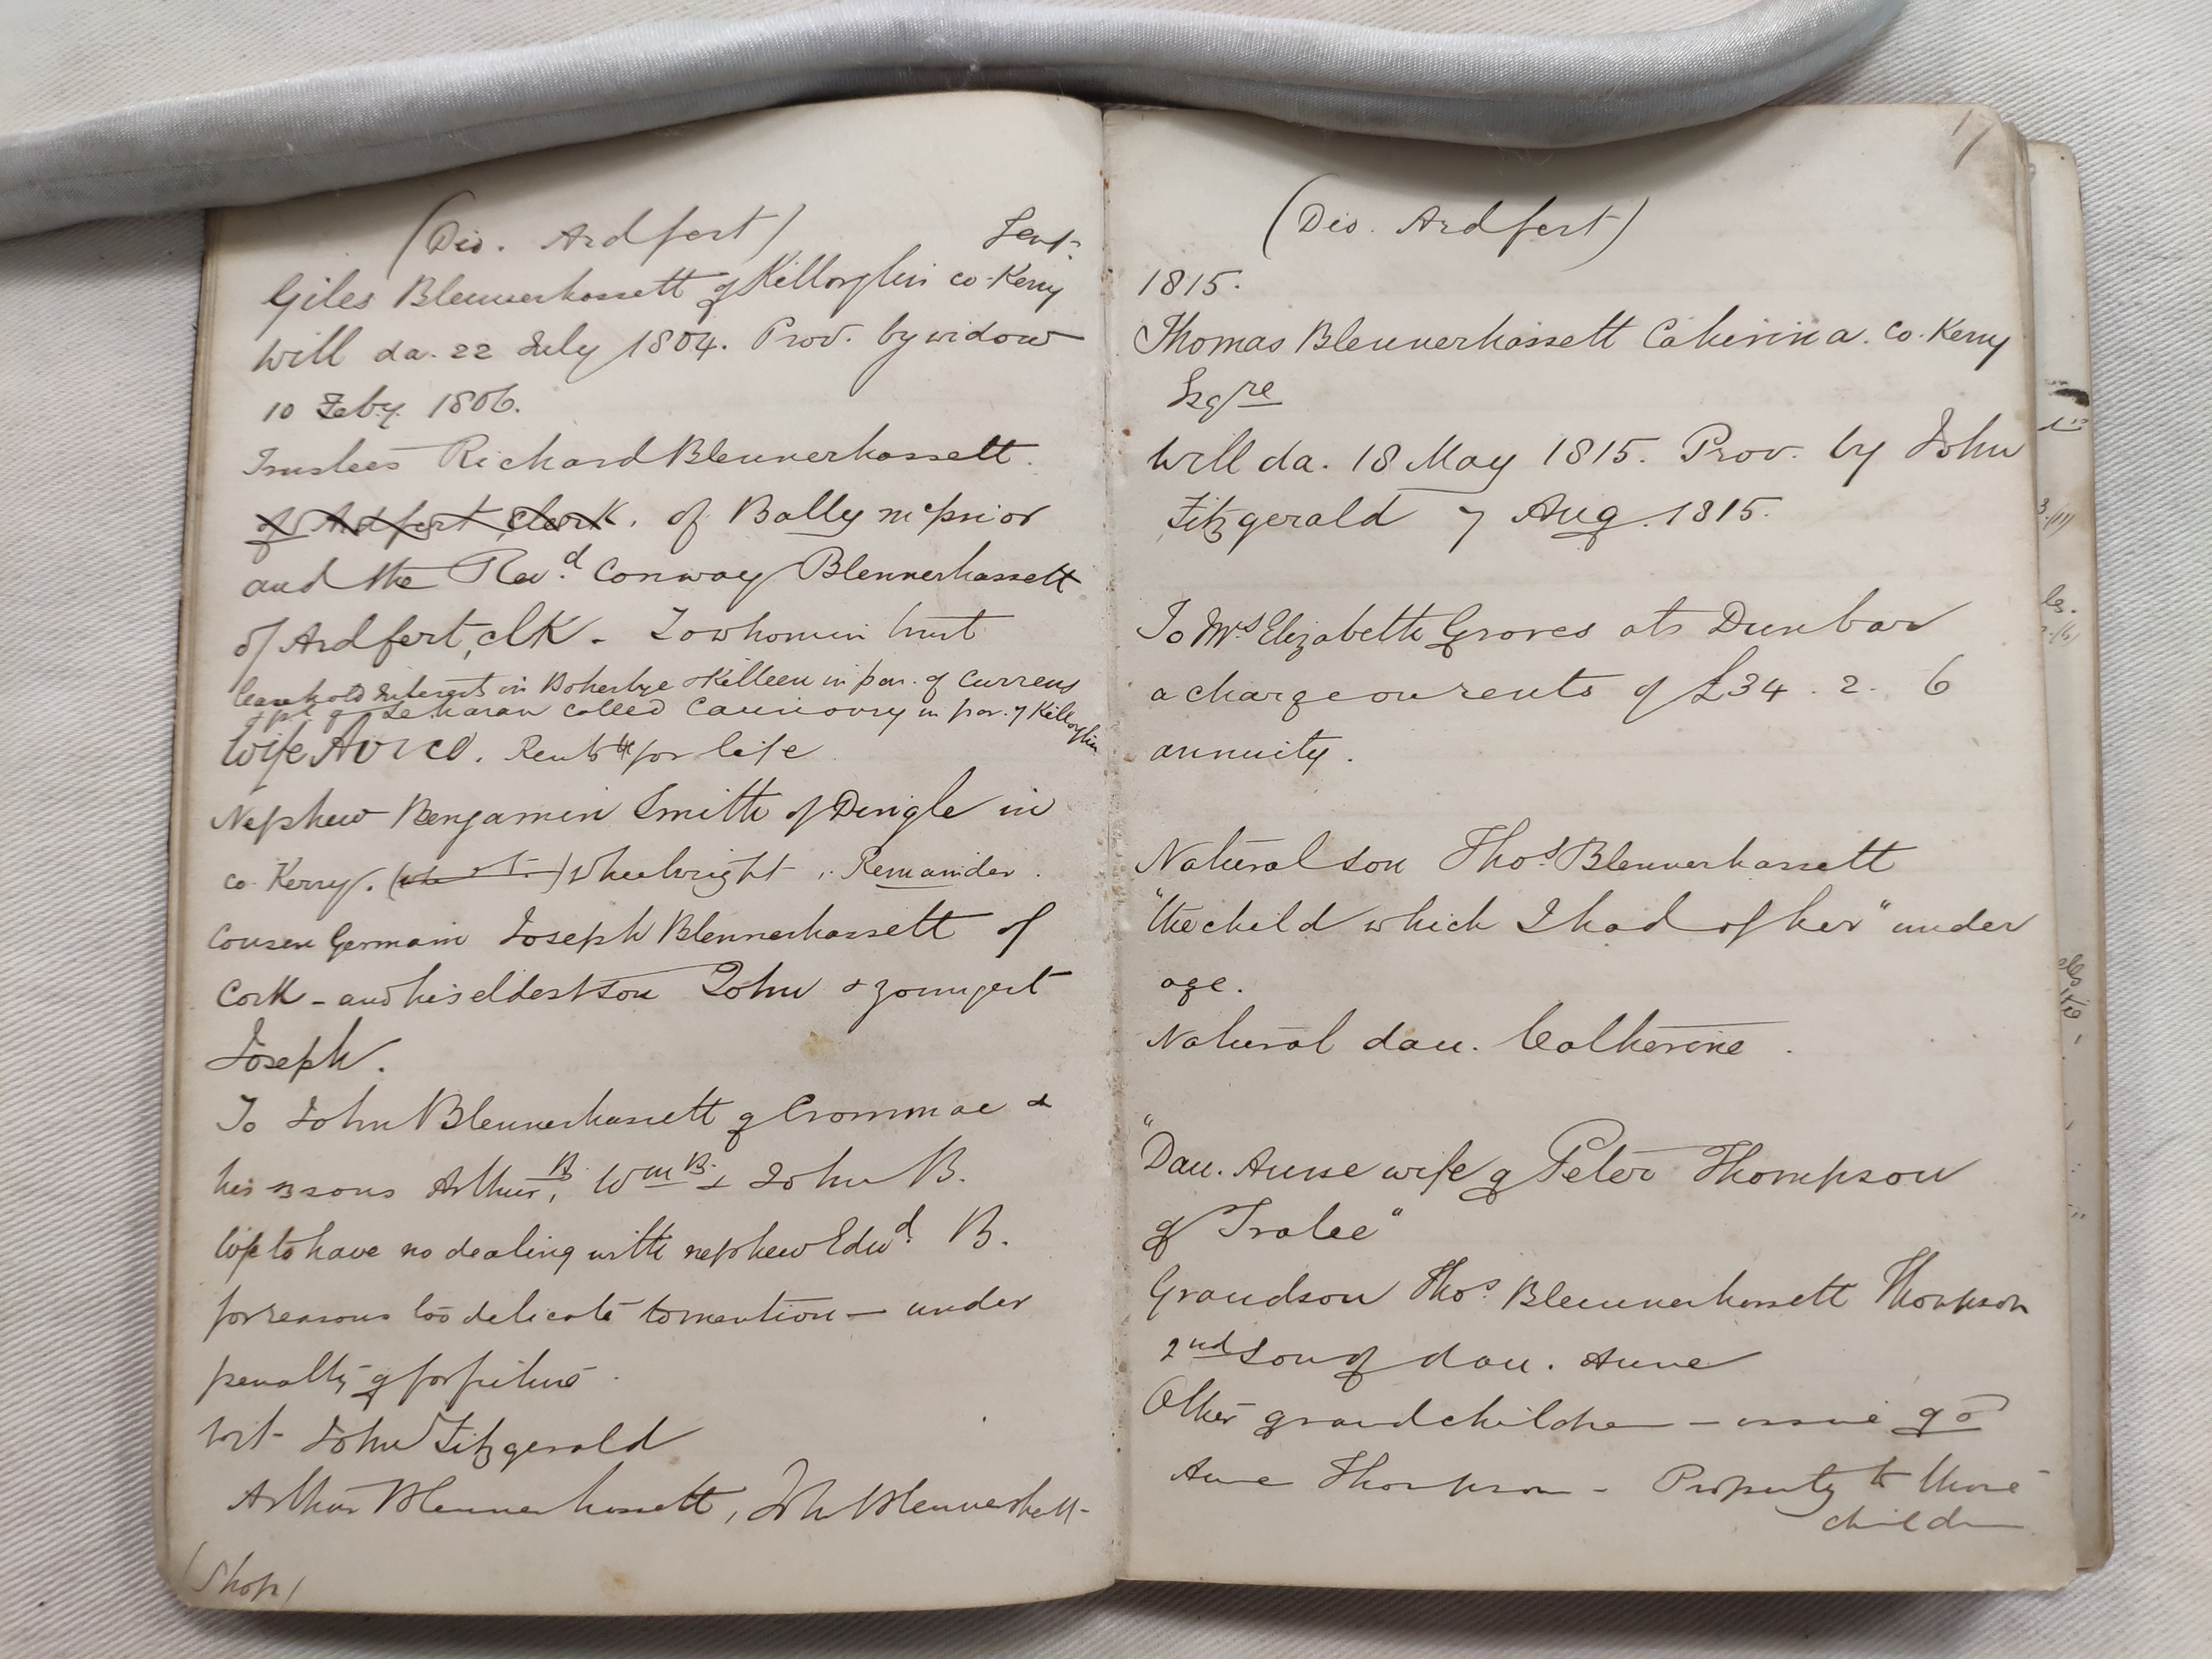 (Dio. Ardfert)
Gent.
Giles Blennerhassett of Killorglin co. Kerry
Will da. 22 July 1804. Prov. by widow
10 Feby. 1806.
Trustees Richard Blennerhassett.
of Ardfert, Clerk. of Bally mcprior
and the Revd. Conway Blennerhassett
of Ardfert, clk - To whom in trust
leasehold interest in Boherbye & Killeen in par. of Currens
& pt. of Leharan called in par. of Killorglin
Wife Avice. Rents for life
Nephew Benjamin Smith of Dingle in
co. Kerry. Wheelwright. Remainder.
Cousen Germain Joseph Blennerhassett of
Cork - and his eldest son John & youngest
Joseph.
To John Blennerhassett of Crommae &
his 3 sons Arthur B., Wm B. & John B.
Wife to have no dealing with nephew Edwd. B.
for reasons too delicate to mention - under
penalty of forfeiture.
Wit - John Fitzgerald
Arthur Blennerhassett, Jn Blennerhassett -
(Shop)
17
(Dio. Ardfert)
1815.
Thomas Blennerhassett Cahirina. Co. Kerry
Esqre
Will da. 18 May 1815. Prov. by John
Fitzgerald 7 Aug. 1815.
To Mrs Elizabeth Groves als Dunbar
a charge on rents of £34. 2. 6
annuity.
Natural son Thos Blennerhassett
"the child which I had of her" under
age.
Natural dau. Catherine.
"Dau. Anne wife of Peter Thompson
of Tralee"
Grandson Thos. Blennerhassett Thompson
2nd son of dau. Anne
Other grandchildren - issue of
Anne Thompson - Property to these
children